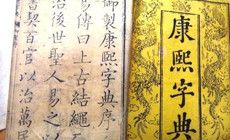 康熙字典
御製康熙字典序
易傳曰上古結繩
治後世聖人易之
書契百官以治萬民